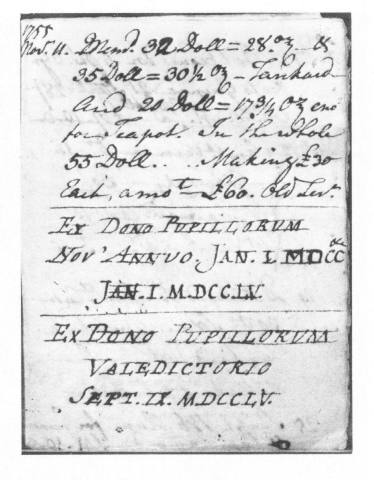 1755
Nov. 11. Mend. 32 Doll = 28. oz - &
35 Doll = 30 1/2 oz - Tankard
And 20 Doll = 17 3/4 oz
for Teapot. In the whole
55 Doll. . . Making £30
Each, amot £60. Old Ten.
EX DONO PUPILLORUM
NOV' ANNUO, JAN. I. MDCC
JAN. I. M.DCC.LV.
EX DONO PUPILLORUM
VALEDICTORIO
SEPT. IX. MDCCLV.